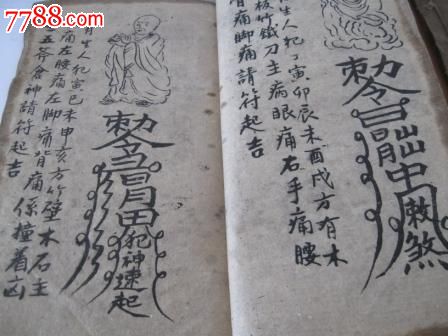 7788.com
勅令
中
敕煞
生人犯丁寅卯辰未酉戌方有木
板竹鐵刀主病眼痛右手痛腰
背痛脚痛請符起吉
勅令
胃田
犯神速起
生人犯寅巳未申亥方竹壁木石主
痛左腰痛左脚痛背痛係撞着凶
五斧倉神請符起吉